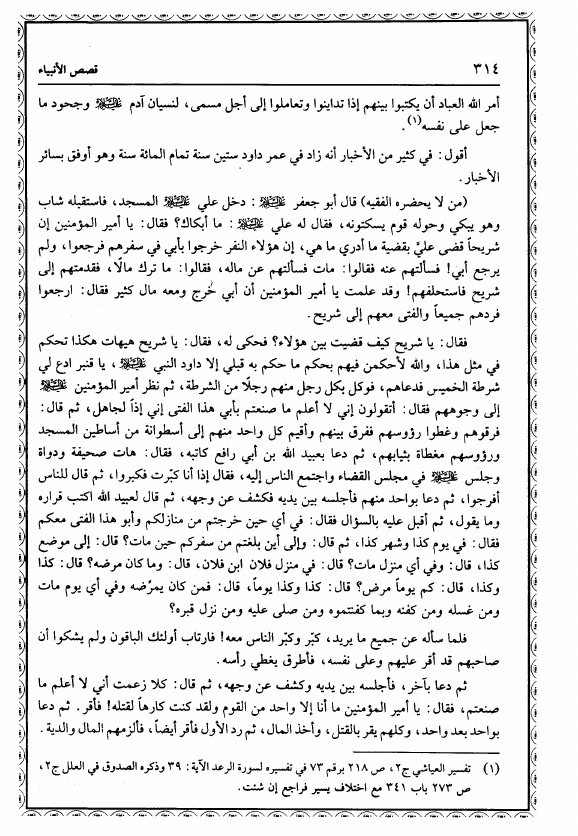 ٣١٤
قصص الأنبياء
أمر الله العباد أن يكتبوا بينهم إذا تداينوا وتعاملوا إلى أجل مسمى، لنسيان آدم ﷺ وجحود ما
جعل على نفسه(١).
أقول: في كثير من الأخبار أنه زاد في عمر داود ستين سنة تمام المائة سنة وهو أوفق بسائر
الأخبار.
(من لا يحضره الفقيه) قال أبو جعفر : دخل علي المسجد، فاستقبله شاب
وهو يبكي وحوله قوم يسكتونه، فقال له علي : ما أبكاك؟ فقال: يا أمير المؤمنين إن
شريحاً قضى عليَّ بقضية ما أدري ما هي، إن هؤلاء النفر خرجوا بأبي في سفرهم فرجعوا، ولم
يرجع أبي! فسألتهم عنه فقالوا: مات فسألتهم عن ماله، فقالوا: ما ترك مالًا، فقدمتهم إلى
شريح فاستحلفهم! وقد علمت يا أمير المؤمنين أن أبي خرج ومعه مال كثير فقال: ارجعوا
فردهم جميعاً والفتى معهم إلى شريح.
فقال: يا شريح كيف قضيت بين هؤلاء؟ فحكى له، فقال: يا شريح هيهات هكذا تحكم
في مثل هذا، والله لأحكمن فيهم بحكم ما حكم به قبلي إلا داود النبي ، يا قنبر ادع لي
شرطة الخميس فدعاهم، فوكل بكل رجل منهم رجلًا من الشرطة، ثم نظر أمير المؤمنين
إلى وجوههم فقال: أتقولون إني لا أعلم ما صنعتم بأبي هذا الفتى إني إذاً لجاهل، ثم قال:
فرقوهم وغطوا رؤوسهم ففرق بينهم وأقيم كل واحد منهم إلى أسطوانة من أساطين المسجد
ورؤوسهم مغطاة بثيابهم، ثم دعا بعبيد الله بن أبي رافع كاتبه، فقال: هات صحيفة ودواة
وجلس في مجلس القضاء واجتمع الناس إليه، فقال إذا أنا كبّرت فكبروا، ثم قال للناس
أفرجوا، ثم دعا بواحد منهم فأجلسه بين يديه فكشف عن وجهه، ثم قال لعبيد الله اكتب قراره
وما يقول، ثم أقبل عليه بالسؤال فقال: في أي حين خرجتم من منازلكم وأبو هذا الفتى معكم
فقال: في يوم كذا وشهر كذا، ثم قال: وإلى أين بلغتم من سفركم حين مات؟ قال: إلى موضع
كذا، قال: وفي أي منزل مات؟ قال: في منزل فلان ابن فلان، قال: وما كان مرضه؟ قال: كذا
وكذا، قال: كم يوماً مرض؟ قال: كذا وكذا يوماً، قال: فمن كان يمرّضه وفي أي يوم مات
ومن غسله ومن كفنه وبما كفنتموه ومن صلى عليه ومن نزل قبره؟
فلما سأله عن جميع ما يريد، كبّر وكبّر الناس معه! فارتاب أولئك الباقون ولم يشكوا أن
صاحبهم قد أقر عليهم وعلى نفسه، فأطرق يغطي رأسه.
ثم دعا بآخر، فأجلسه بين يديه وكشف عن وجهه، ثم قال: كلا زعمت أني لا أعلم ما
صنعتم، فقال: يا أمير المؤمنين ما أنا إلا واحد من القوم ولقد كنت كارهاً لقتله! فأقر. ثم دعا
بواحد بعد واحد، وكلهم يقر بالقتل، وأخذ المال، ثم رد الأول فأقر أيضاً، فألزمهم المال والدية.
(١) تفسير العياشي ج٢، ص ٢١٨ برقم ٧٣ في تفسيره لسورة الرعد الآية: ٣٩ وذكره الصدوق في العلل ج٢،
ص ٢٧٣ باب ٣٤١ مع اختلاف يسير فراجع إن شئت.